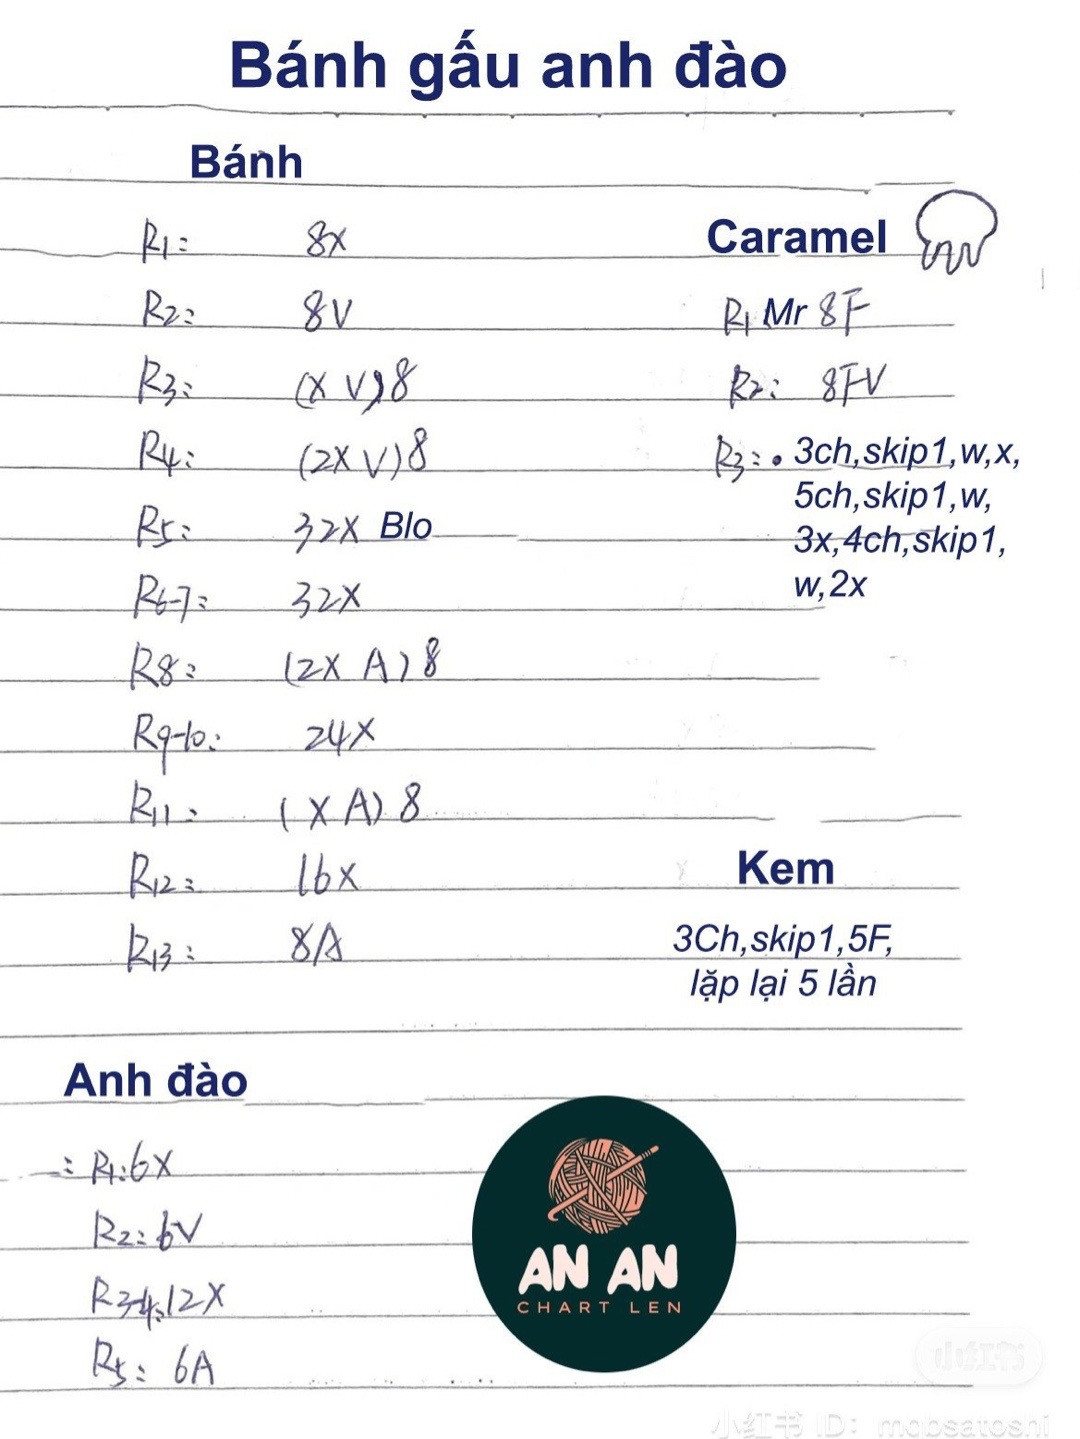 Bánh gấu anh đào
Bánh
R1: 8X
R2: 8V
R3: (X V)8
R4: (2X V)8
R5: 32X Blo
R6-7: 32X
R8: (2X A)8
R9-10: 24X
R11: (X A)8
R12: 16X
R13: 8A
Caramel
R1 Mr 8F
R2: 8FV
R3: 3ch,skip1,w,x,
5ch,skip1,w,
3x,4ch,skip1,
w,2x
Kem
3Ch,skip1,5F,
lặp lại 5 lần
Anh đào
R1: 6X
R2: 6V
R3-4: 12X
R5: 6A
AN AN
CHART LEN
小红书
小红书 ID: mqbsatoshi